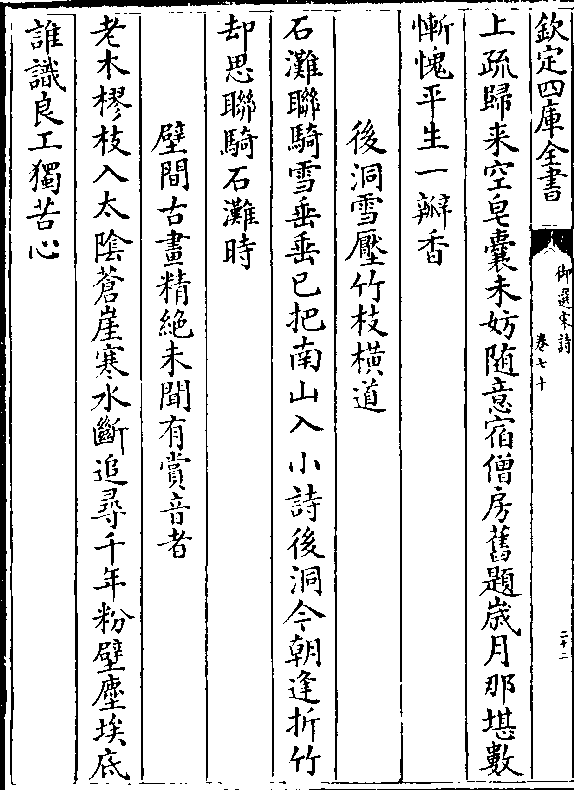 欽定四庫全書
御選宋詩
卷七十
二十二
上疏歸来空皂囊未妨随意宿僧房舊題歲月那堪數
慚愧平生一瓣香
後洞雪壓竹枝横道
石灘聯騎雪垂垂已把南山入小詩後洞今朝逢折竹
却思聯騎石灘時
壁間古畫精絶未聞有賞音者
老木樛枝入太陰蒼崖寒水斷追尋千年粉壁塵埃底
誰識良工獨苦心